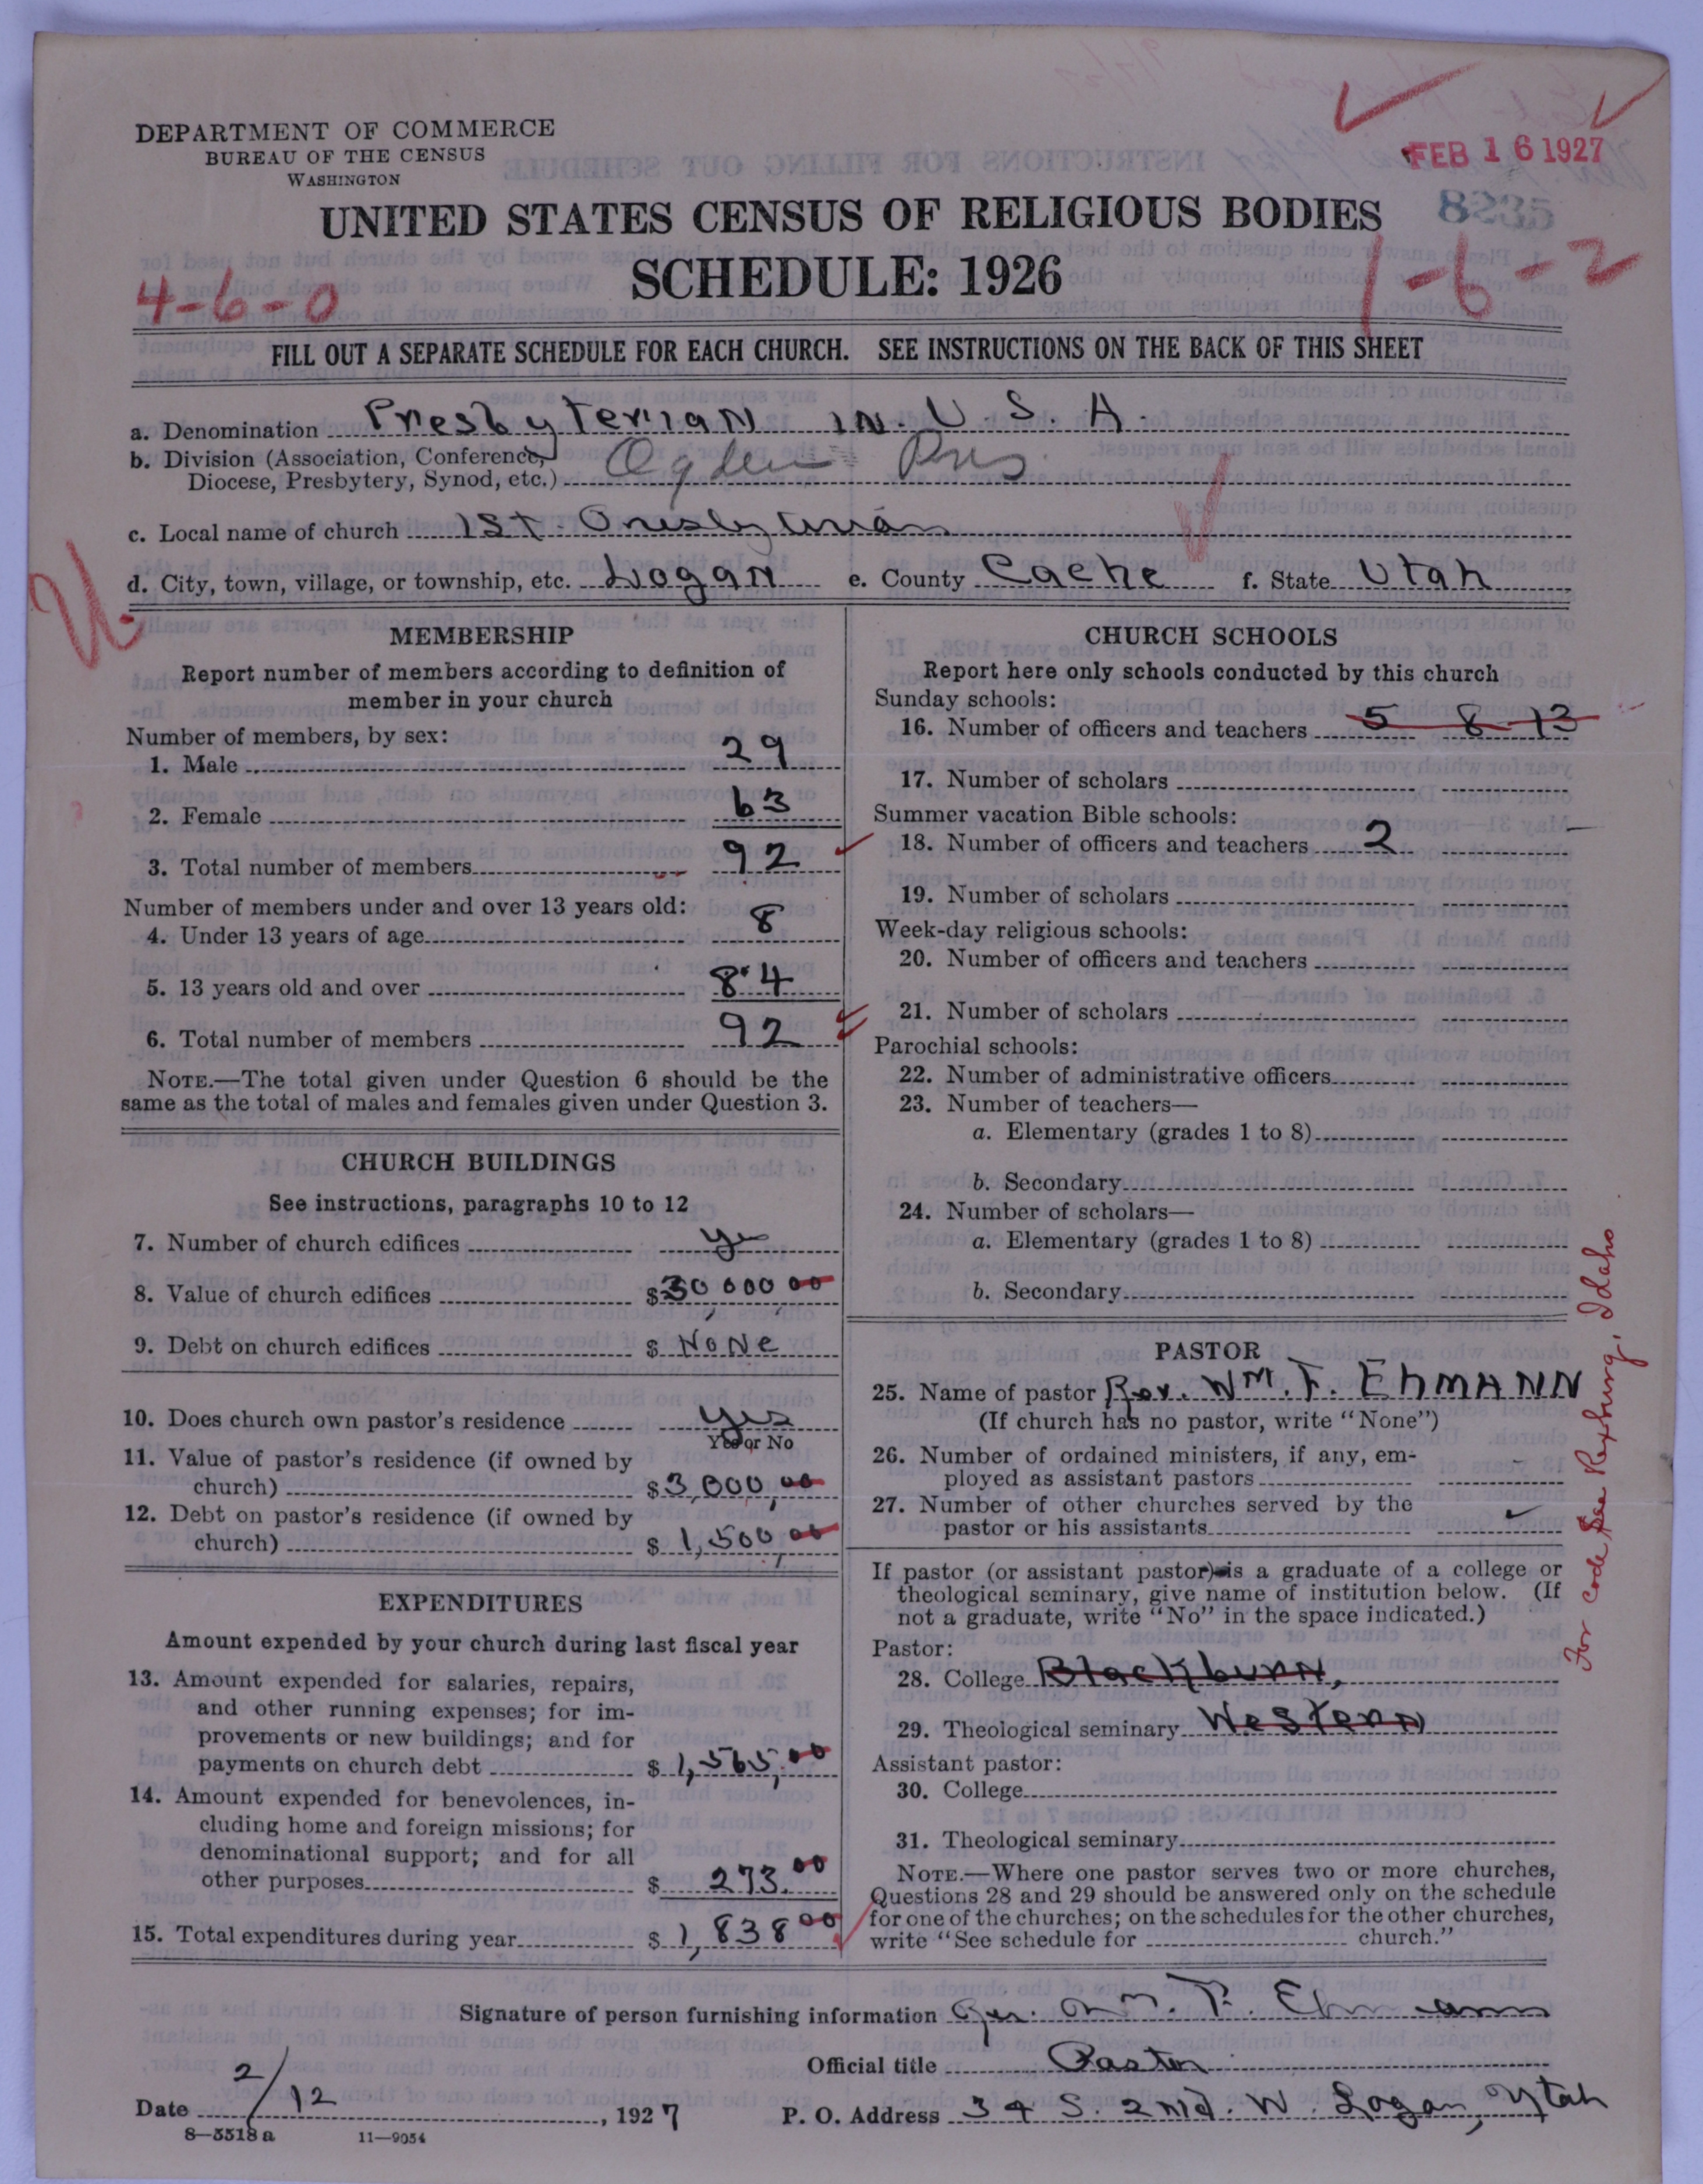 DEPARTMENT OF COMMERCE
BUREAU OF THE CENSUS
WASHINGTON
FEB 16 1927
8235
UNITED STATES CENSUS OF RELIGIOUS BODIES
SCHEDULE: 1926
4-6-0
1-6-2
FILL OUT A SEPARATE SCHEDULE FOR EACH CHURCH. SEE INSTRUCTIONS ON THE BACK OF THIS SHEET
a. Denomination Presbyterian in U.S.A.
b. Division (Association, Conference,
Diocese, Presbytery, Synod, etc.) Ogden Pres.
c. Local name of church 1st Presbyterian
d. City, town, village, or township, etc. Logan e. County Cache f. State Utah
MEMBERSHIP
Report number of members according to definition of
member in your church
Number of members, by sex:
1. Male 29
2. Female 63
3. Total number of members 92
Number of members under and over 13 years old:
4. Under 13 years of age 8
5. 13 years old and over 84
6. Total number of members 92
NOTE.—The total given under Question 6 should be the
same as the total of males and females given under Question 3.
CHURCH BUILDINGS
See instructions, paragraphs 10 to 12
7. Number of church edifices yes
8. Value of church edifices $30000 00
9. Debt on church edifices $ None
10. Does church own pastor's residence yes
Yes or No
11. Value of pastor's residence (if owned by
church) $3,000,00
12. Debt on pastor's residence (if owned by
church) $1,500,00
EXPENDITURES
Amount expended by your church during last fiscal year
13. Amount expended for salaries, repairs,
and other running expenses; for im-
provements or new buildings; and for
payments on church debt $1,565,00
14. Amount expended for benevolences, in-
cluding home and foreign missions; for
denominational support; and for all
other purposes $ 273.00
15. Total expenditures during year $1,838 00
CHURCH SCHOOLS
Report here only schools conducted by this church
Sunday schools:
16. Number of officers and teachers 5 8 13
17. Number of scholars
Summer vacation Bible schools:
18. Number of officers and teachers 2
19. Number of scholars
Week-day religious schools:
20. Number of officers and teachers
21. Number of scholars
Parochial schools:
22. Number of administrative officers
23. Number of teachers—
a. Elementary (grades 1 to 8)
b. Secondary
24. Number of scholars—
a. Elementary (grades 1 to 8)
b. Secondary
PASTOR
25. Name of pastor Rev. Wm. F. Ehmann
(If church has no pastor, write "None")
26. Number of ordained ministers, if any, em-
ployed as assistant pastors -
27. Number of other churches served by the
pastor or his assistants
If pastor (or assistant pastor) is a graduate of a college or
theological seminary, give name of institution below. (If
not a graduate, write "No" in the space indicated.)
Pastor:
28. College Blackburn,
29. Theological seminary Western
Assistant pastor:
30. College
31. Theological seminary
NOTE.—Where one pastor serves two or more churches,
Questions 28 and 29 should be answered only on the schedule
for one of the churches; on the schedules for the other churches,
write "See schedule for church."
For code see Rexburg, Idaho
Signature of person furnishing information Rev. Wm. F. Ehmann
Official title Pastor
Date 2/12, 1927 P. O. Address 34 S. 2nd. W. Logan, Utah
8—5518 a 11—9054